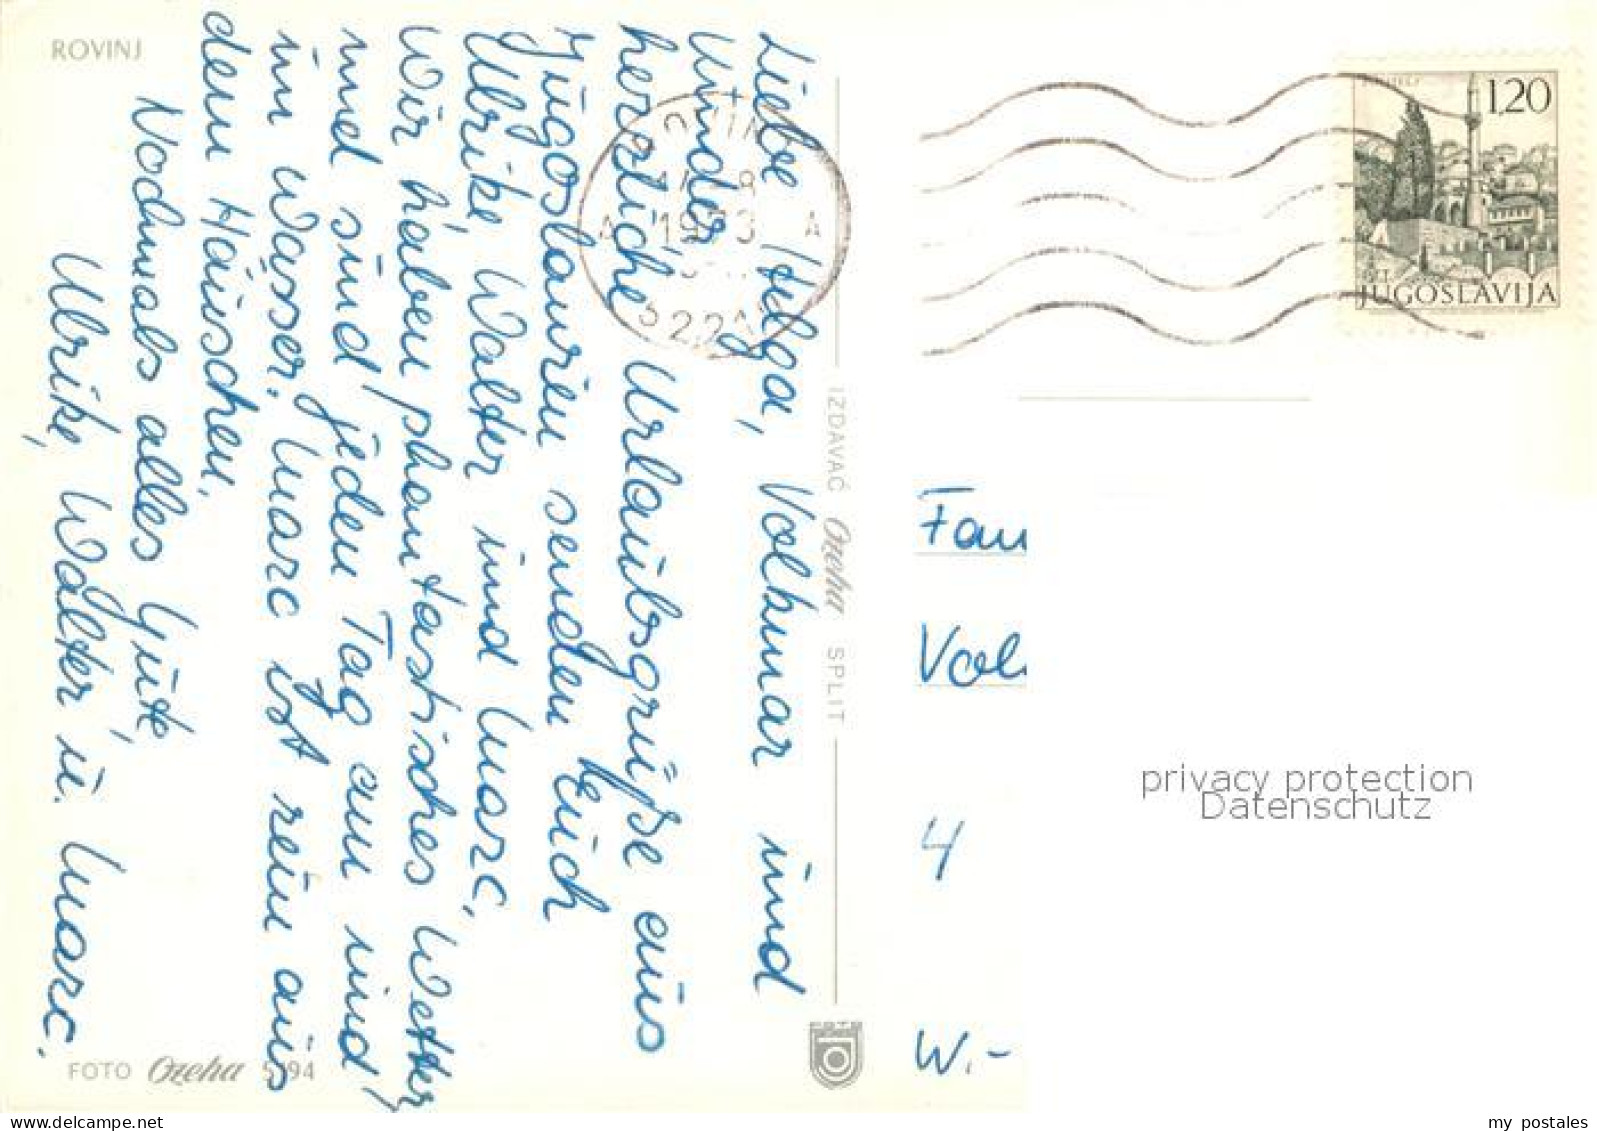 ROVINJ
Liebe Helga, Volkmar und
Kinder
herzliche Urlaubsgrüße aus
Jugoslawien senden Euch
Ulrike, Walter und Marc.
Wir haben phantastisches Wetter
und sind jeden Tag am und
im Wasser. Marc ist rein aus
dem Häuschen.
Nochmals alles Gute,
Ulrike, Walter u. Marc.
FOTO Ozeha
IZDAVAČ Ozeha SPLIT
1973
A A
1,20
JUGOSLAVIJA
Fam
Vol
4
W.-
privacy protection
Datenschutz
my postales